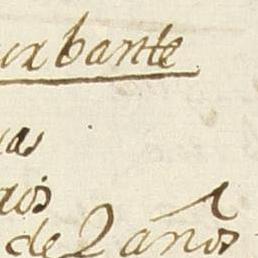 urbante
as
ros
de 2 años